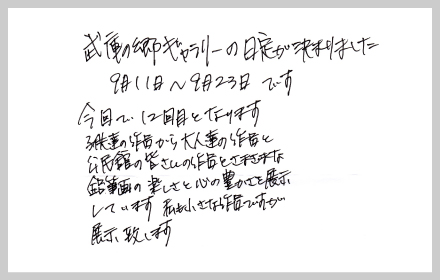 武庫の郷ギャラリーの日定が決まりました
9月11日〜9月23日です
今回で12回目となります
子供達の作品から大人達の作品と
公民館の皆さんの作品とさまざまな
鉛筆画の楽しさと心の豊かさを展示
しています 私も小さな作品ですが
展示致します